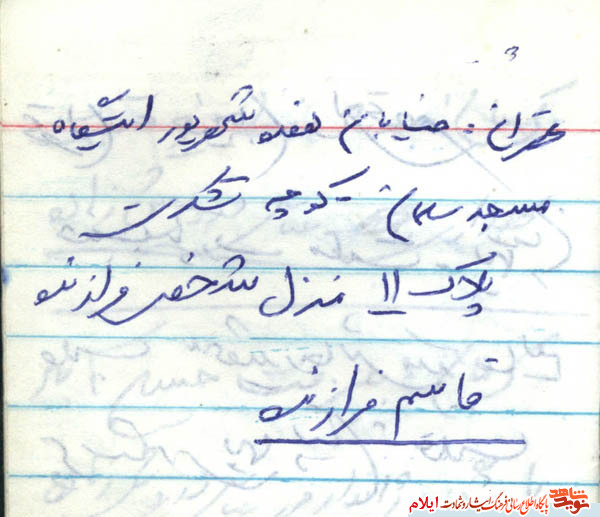 ۳
تهران : خیابان هفده شهریور ایستگاه
مسجد سلمان - کوچه شکر
پلاک ۱۱ منزل شخصی فرازنده
قاسم فرازنده
نوید شاهد پایگاه اطلاع رسانی فرهنگ ایثار و شهادت ایلام